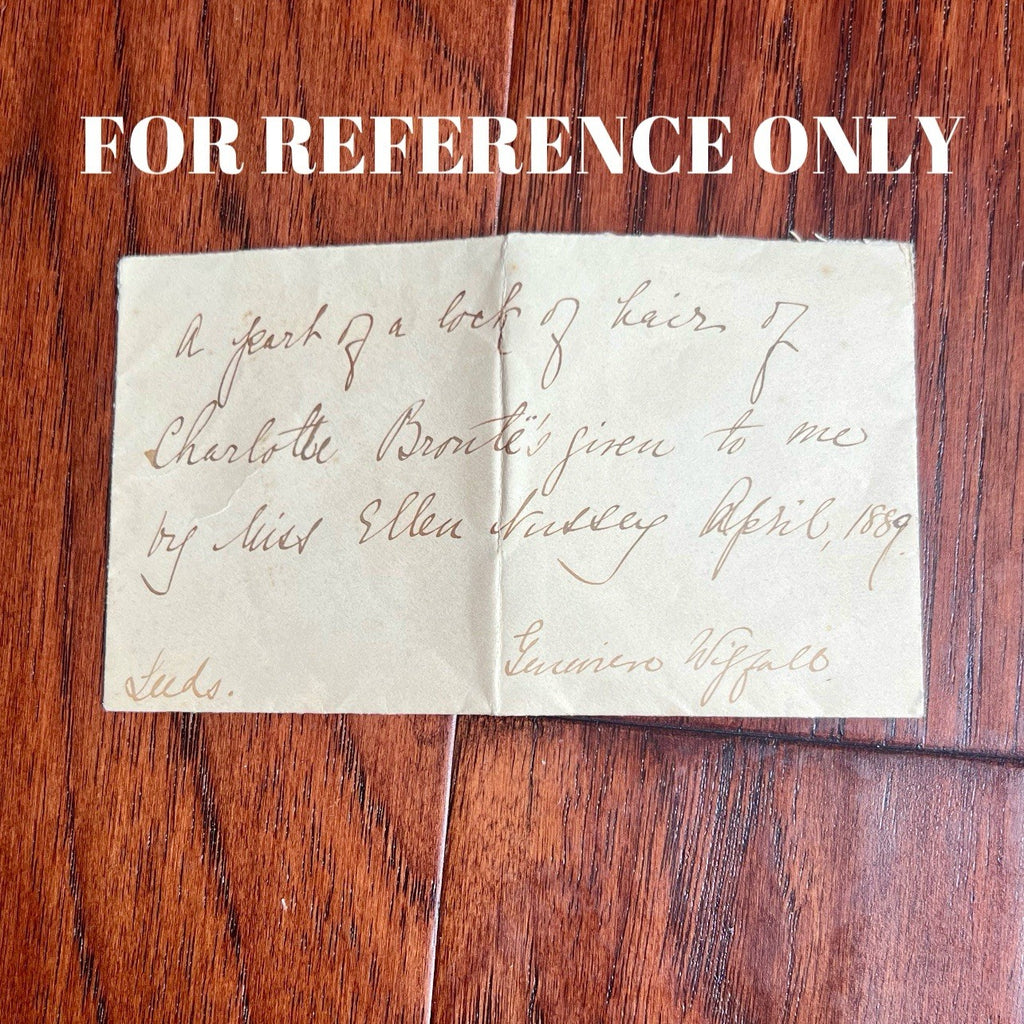 FOR REFERENCE ONLY
A part of a lock of hair of
Charlotte Brontë's given to me
by Miss Ellen Nussey April, 1889.
Genevieve Wigfall
Leeds.